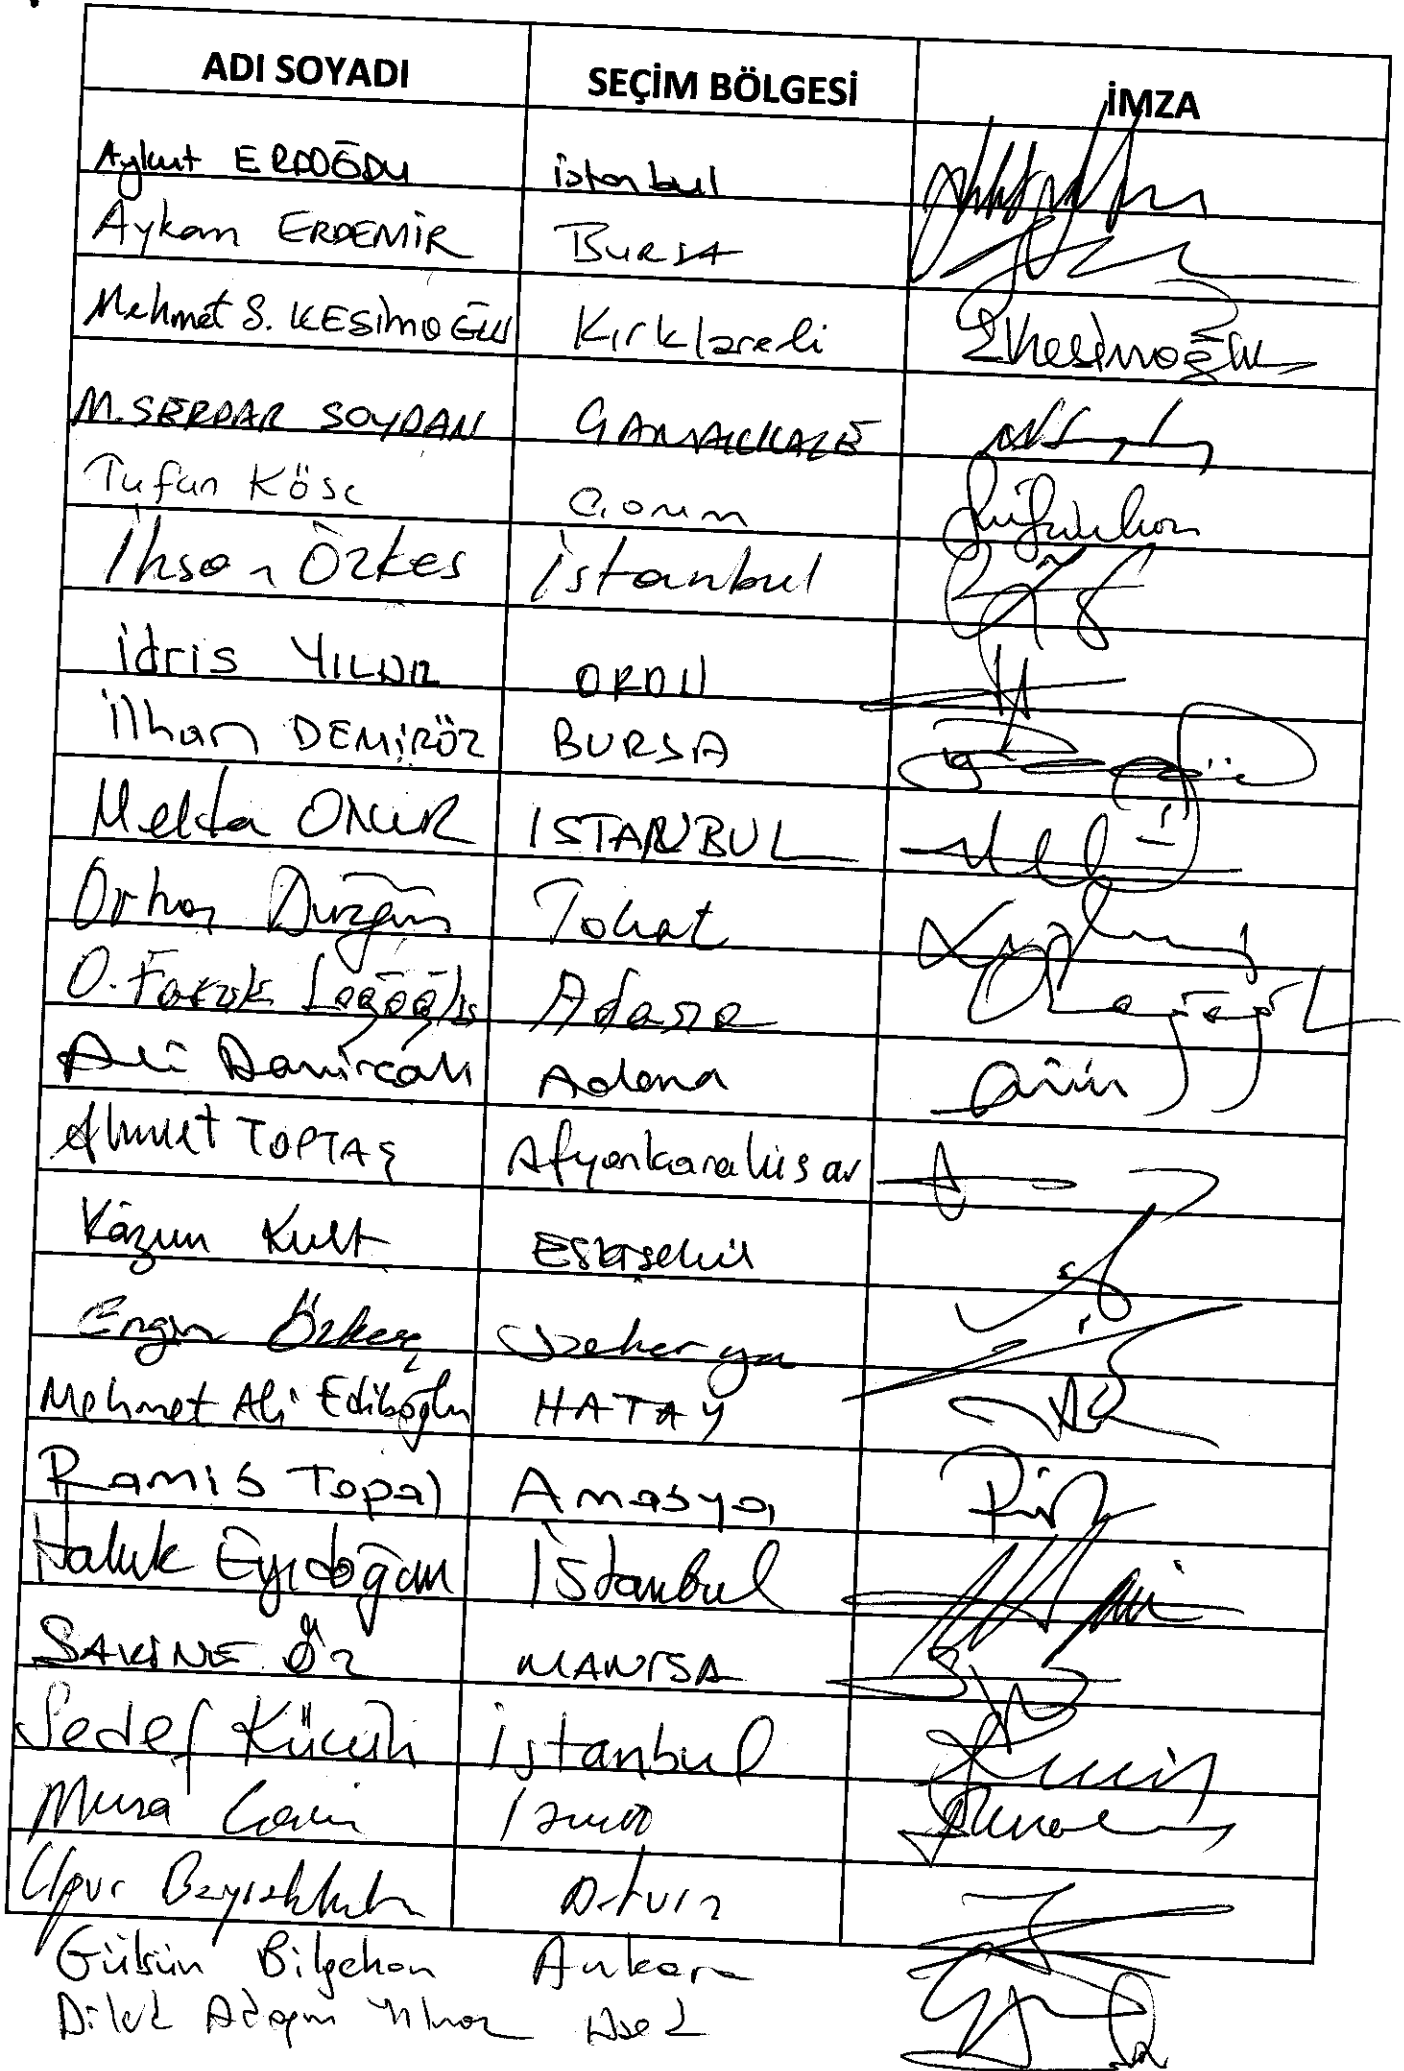 ADI SOYADI SEÇİM BÖLGESİ İMZA
Aykut ERDOĞDU istanbul
Aykan ERDEMİR BURSA
Mehmet S. KESİMOĞLU Kırklareli
M. SERDAR SOYDAN ÇANAKKALE
Tufan Köse Çorum
İhsan Özkes İstanbul
idris YILDIZ ORDU
ilhan DEMİRÖZ BURSA
Melda ONUR ISTANBUL
Orhan Düzgün Tokat
O. Faruk Loğoğlu Adana
Ali Demirçalı Adana
Ahmet TOPTAŞ Afyonkarahisar
Kâzım Kurt Eskişehir
Engin Özkoç Sakarya
Mehmet Ali Ediboğlu HATAY
Ramis Topal Amasya
Haluk Eyidoğan İstanbul
SAKİNE ÖZ MANİSA
Sedef Küçük istanbul
Musa Çam İzmir
Uğur Bayraktutan Artvin
Gülsün Bilgehan Ankara
Dilek Akagün Yılmaz Uşak